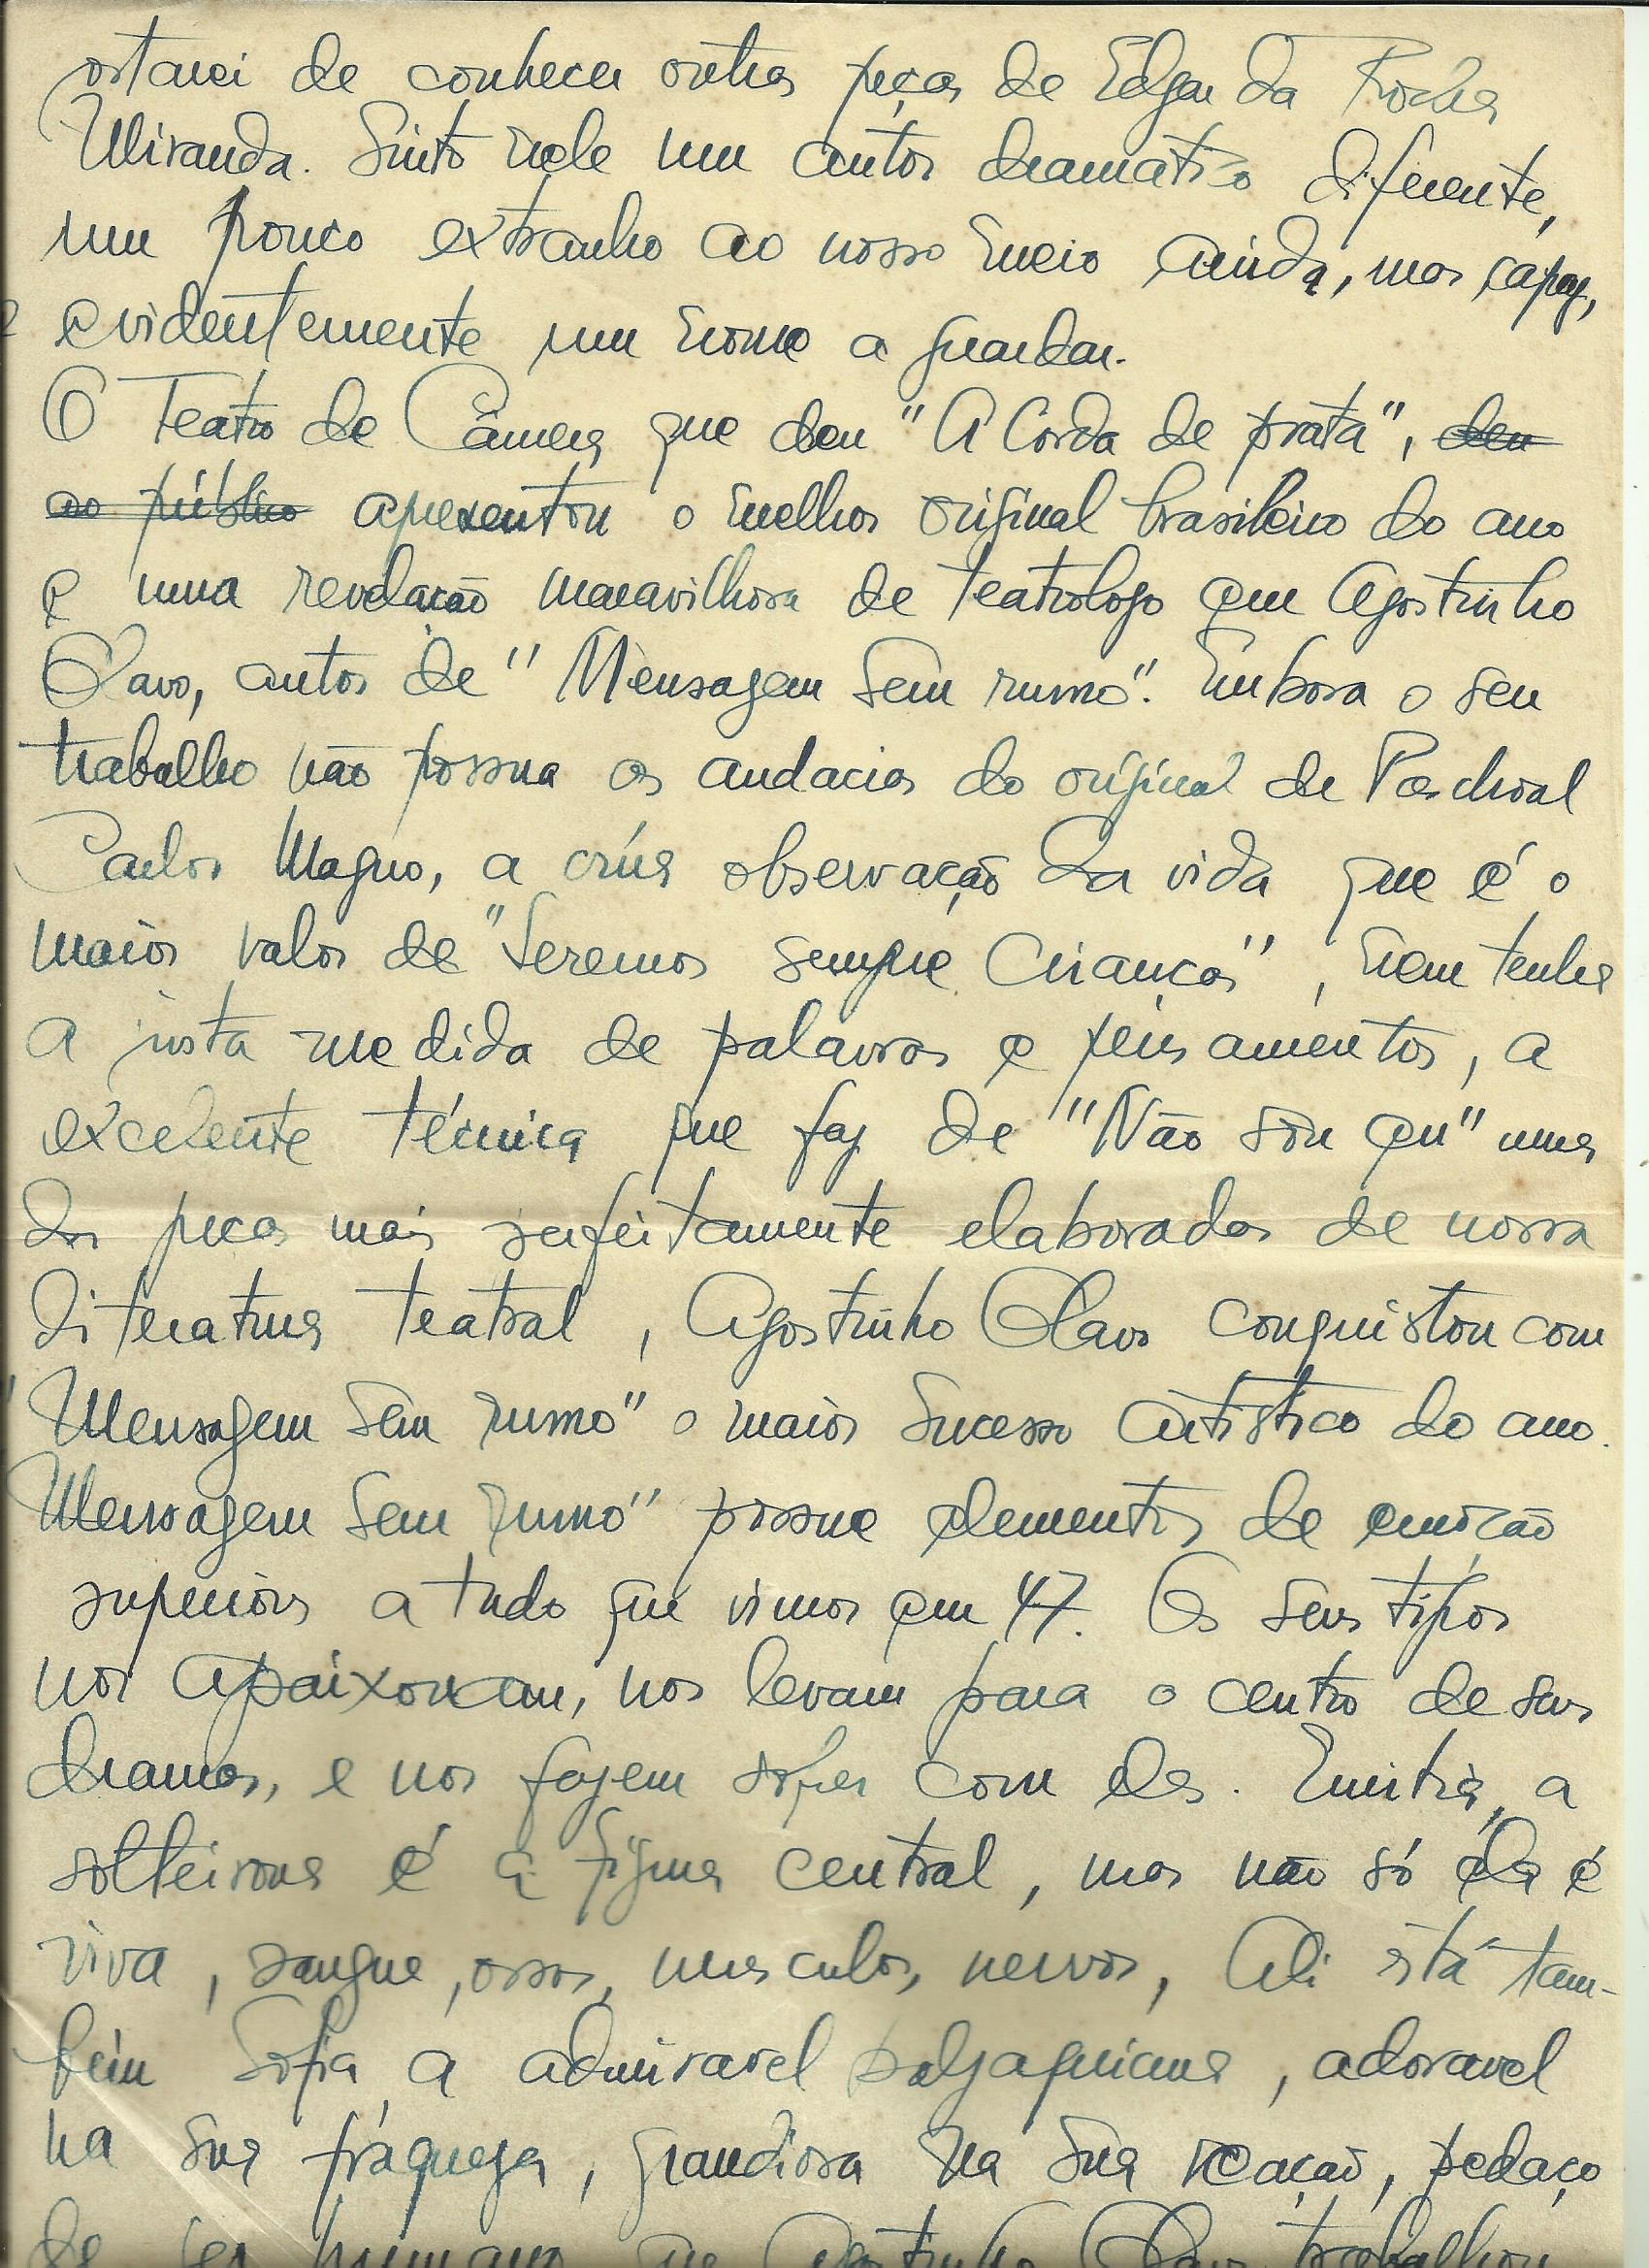 ostarei de conhecer outras peças de Edgar da Rocha
Miranda. Sinto nele um autor dramatico diferente,
um pouco extranho ao nosso meio ainda, mas capaz,
e evidentemente um nome a guardar.
O Teatro de Câmera que deu "A Corda de prata", deu
ao público apresentou o melhor original brasileiro do ano
e uma revelação maravilhosa de teatrologo em Agostinho
Olavo, autor de "Mensagem sem rumo". Embora o seu
trabalho não possua as audacias do original de Paschoal
Carlos Magno, a crúa observação da vida que é o
maior valor de "Seremos sempre Crianças", nem tenha
a justa medida de palavras e pensamentos, a
excelente técnica que faz de "Não sou eu" uma
das peças mais perfeitamente elaboradas de nossa
literatura teatral, Agostinho Olavo conquistou com
"Mensagem sem rumo" o maior sucesso artistico do ano.
Mensagem sem rumo" possue elementos de emoção
superiores a tudo que vimos em 47. Os seus tipos
nos apaixonam, nos levam para o centro de seus
dramas, e nos fazem sofrer com eles. a
solteirona é a figura central, mas não só ela é
viva, sangue, ossos, musculos, nervos, Ali está tam-
bém Sofia, a admiravel balzaquiana, adoravel
na sua fraqueza, grandiosa na sua reação, pedaço
de ser humano que Agostinho Olavo trabalhou